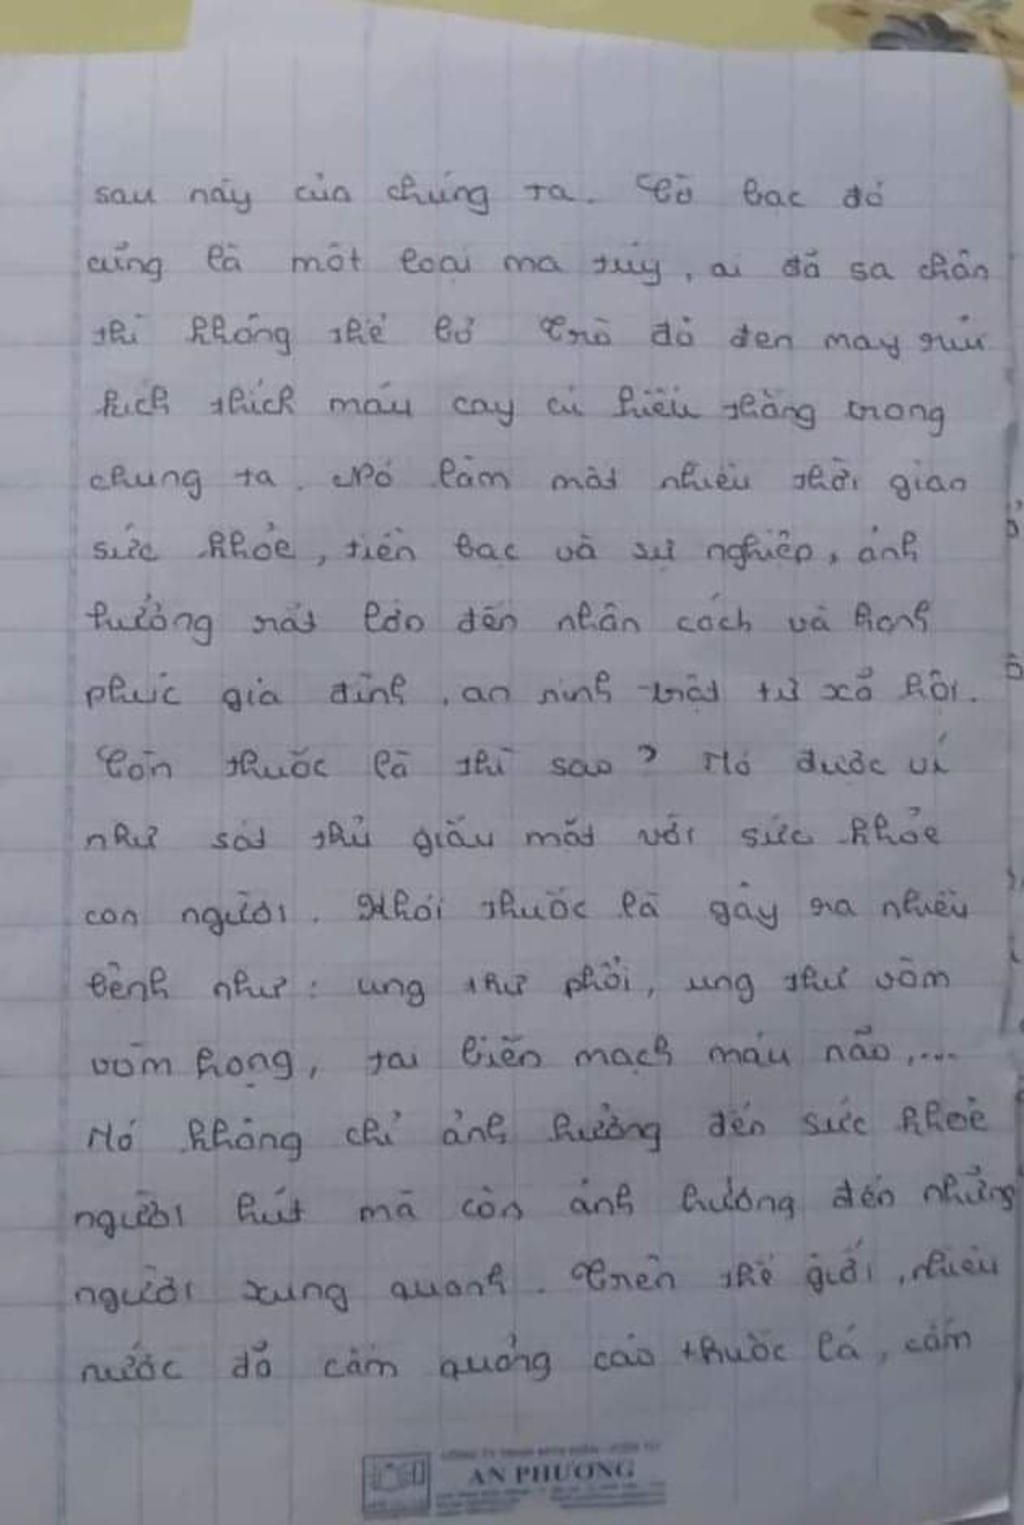 sau này của chúng ta. Cờ bạc đó
cũng là một loại ma túy, ai đã sa chân
thì không thể bỏ Trò đỏ đen may rủi
kích thích máu cay cú hiếu thắng trong
chung ta. Nó làm mất nhiều thời gian
sức khỏe, tiền bạc và sự nghiệp, ảnh
hưởng rất lớn đến nhân cách và hạnh
phúc gia đình, an ninh trật tự xã hội.
Còn thuốc lá thì sao? Nó được ví
như sát thủ giấu mặt với sức khỏe
con người. Khói thuốc lá gây ra nhiều
bệnh như: ung thư phổi, ung thư vòm
vòm họng, tai biến mạch máu não,...
Nó không chỉ ảnh hưởng đến sức khoẻ
người hút mà còn ảnh hưởng đến những
người xung quanh. Trên thế giới, nhiều
nước đã cấm quảng cáo thuốc lá, cấm
AN PHƯƠNG